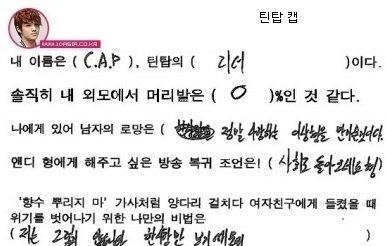 틴탑 캡
WWW.10ASIA.CO.KR
내 이름은 ( C.A.P ), 틴탑의 ( 리더 )이다.
솔직히 내 외모에서 머리발은 ( 0 )%인 것 같다.
나에게 있어 남자의 로망은 ( 정말 사랑하는 이상형을 만나는것이다.
앤디 형에게 해주고 싶은 방송 복귀 조언은! ( 사회로 돌아오세요 형 )
‘향수 뿌리지 마’ 가사처럼 양다리 걸치다 여자친구에게 들켰을 때
위기를 벗어나기 위한 나만의 비법은
( 저는 그럴일 없지만 한번만 봐주세요